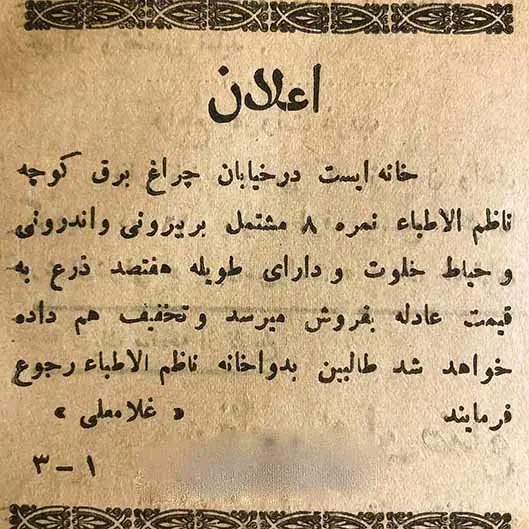 اعلان
خانه ایست درخیابان چراغ برق کوچه
ناظم الاطباء نمره ۸ مشتمل بر بیرونی و اندرونی
و حیاط خلوت و دارای طویله هفتصد ذرع به
قیمت عادله بفروش میرسد و تخفیف هم داده
خواهد شد طالبین بدواخانه ناظم الاطباء رجوع
فرمایند « غلامعلی »
۱ – ۳